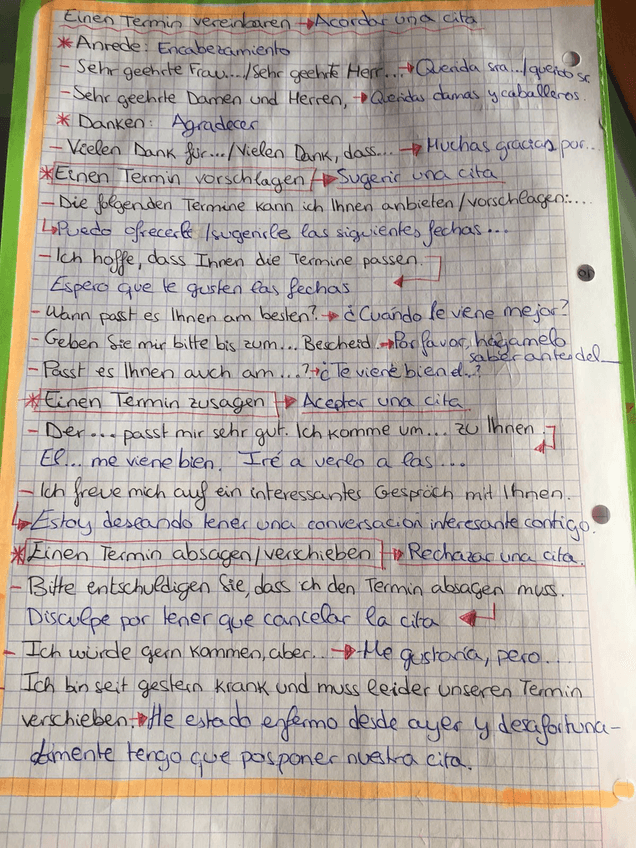 Einen Termin vereinbaren → Acordar una cita
* Anrede: Encabezamiento
- Sehr geehrte Frau.../Sehr geehrte Herr... → Querida sra../querido sr
- Sehr geehrte Damen und Herren, → Queridas damas y caballeros.
* Danken: Agradecer
- Vielen Dank für.../Vielen Dank, dass... → Muchas gracias por...
* Einen Termin vorschlagen/→ Sugerir una cita
- Die folgenden Termine kann ich Ihnen anbieten/vorschlagen:....
↳ Puedo ofrecerle /sugerirle las siguientes fechas...
- Ich hoffe, dass Ihnen die Termine passen.
Espero que te gusten las fechas
- Wann passt es Ihnen am besten? → ¿Cuándo le vene mejor?
- Geben Sie mir bitte bis zum... Bescheid. → Por favor, hágamelo
saber antes del
- Passt es Ihnen auch am...? → ¿Te viene bien el..?
* Einen Termin zusagen → Aceptar una cita
- Der... passt mir sehr gut. Ich komme um... zu Ihnen
El... me viene bien. Iré a verlo a las...
- Ich freue mich auf ein interessantes Gespräch mit Ihnen.
↳ Estoy deseando tener una conversación interesante contigo.
* Einen Termin absagen/verschieben → Rechazar una cita.
- Bitte entschuldigen Sie, dass ich den Termin absagen muss.
Disculpe por tener que cancelar la cita
- Ich würde gern kommen, aber... → Me gustaría, pero...
- Ich bin seit gestern krank und muss leider unseren Termin
verschieben. → He estado enfermo desde ayer y desafortuna-
damente tengo que posponer nuestra cita.